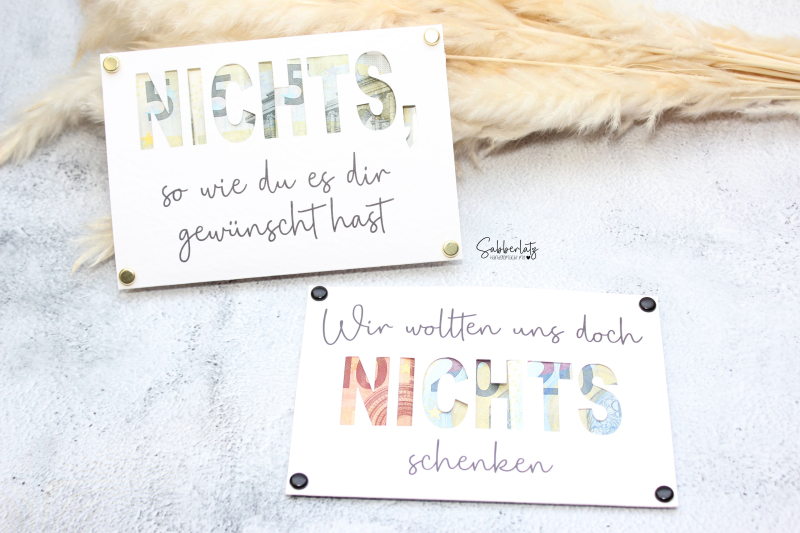 NICHTS,
so wie du es dir
gewünscht hast
Sabberlatz
Wir wollten uns doch
NICHTS
schenken